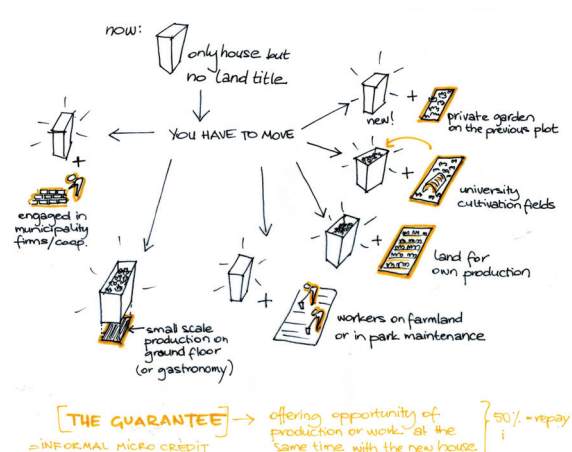 now:
only house but
no land title
YOU HAVE TO MOVE
new!
private garden
on the previous plot
university
cultivation fields
land for
own production
workers on farmland
or in park maintenance
small scale
production on
ground floor
(or gastronomy)
engaged in
municipality
firms/coop.
[THE GUARANTEE] →
= INFORMAL MICRO CREDIT
offering opportunity of
production or work at the
same time with the new house
50% = repay
i